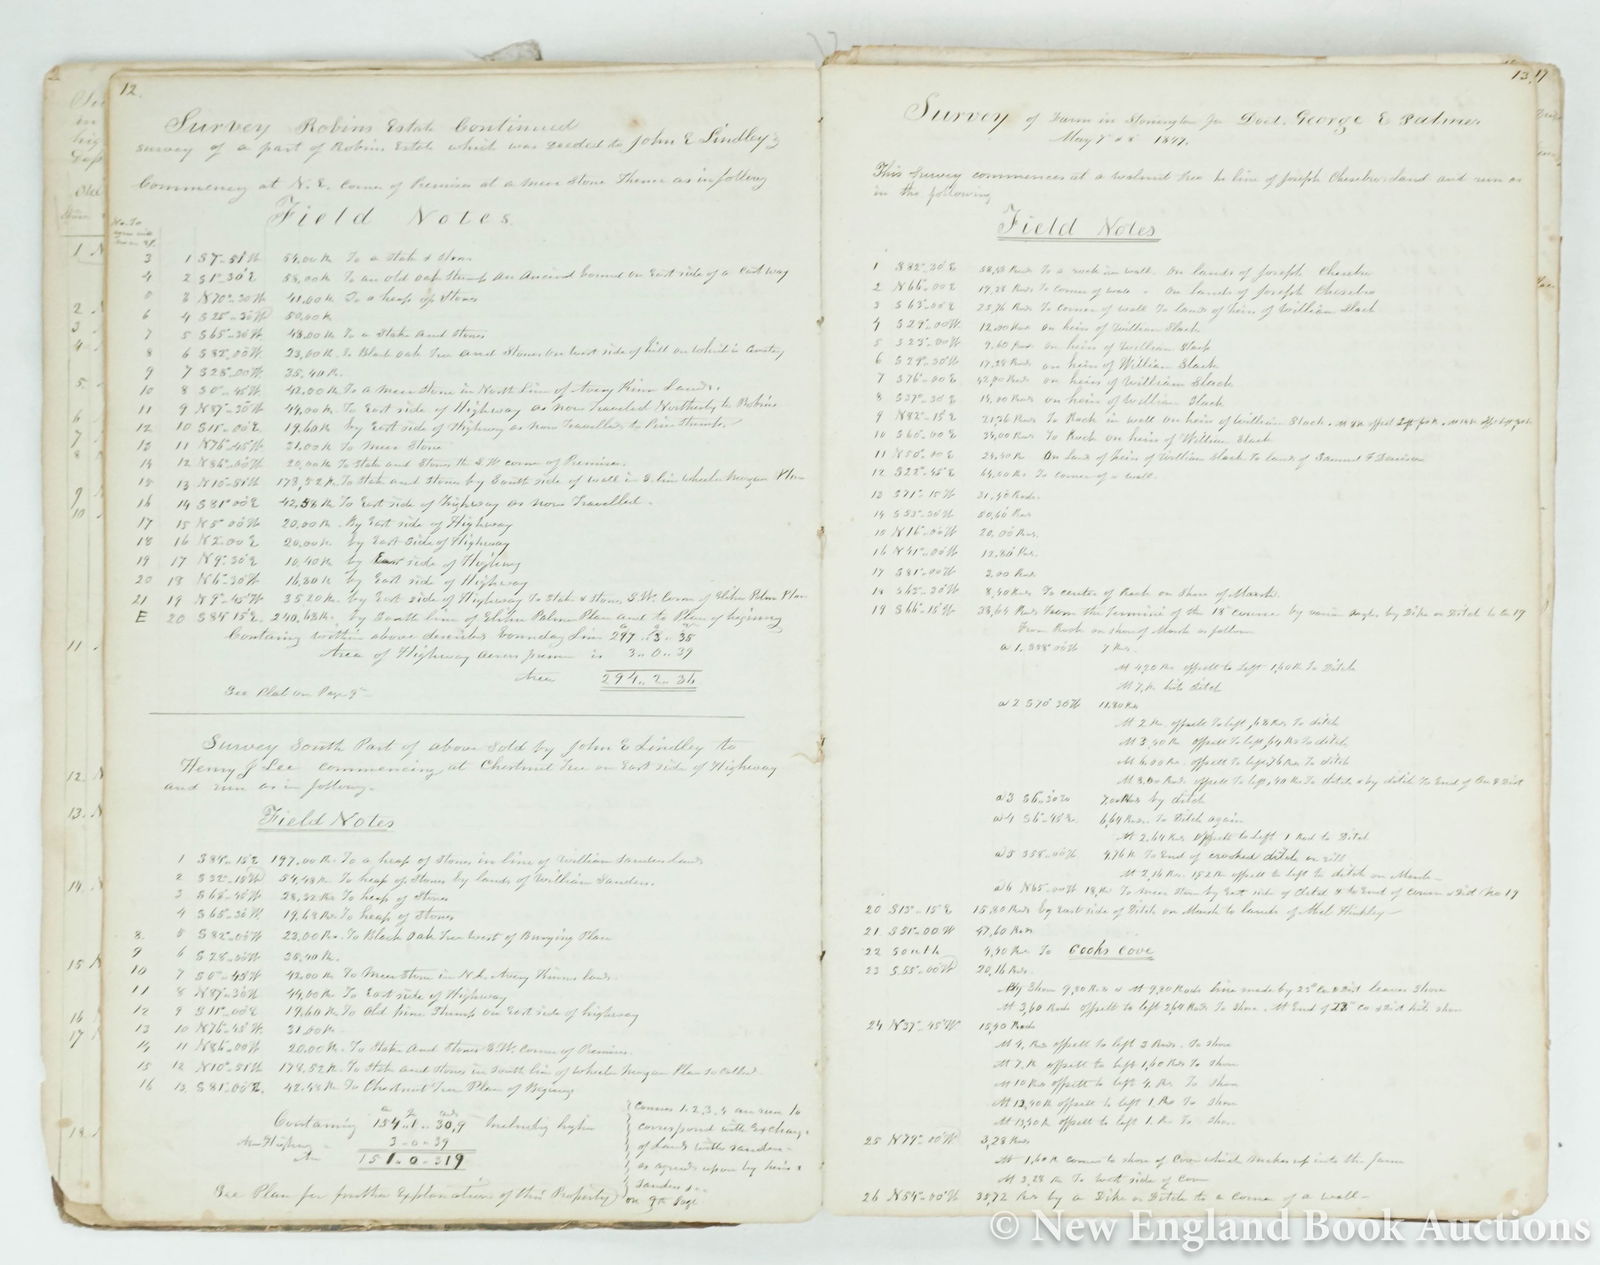 12.
Survey Robins Estate Continued
Survey of a part of Robins Estate which was deeded to John E Lindley
Commencing at N. E. Corner of Premises at a mere Stone Thence as in following
Field Notes
3 1 S7°-51'W 54,00 R To a Stake & Stones
4 2 S1°-30'E 58,00 R To an old oak Stump an Ancient bound on East side of a Cart way
3 N70°-30'W 41,00 R To a heap of Stones
6 4 S25°-30'W 50,00 R
7 5 S65°-30'W 48,00 R To a Stake and Stones
8 6 S82°-00'W 23,00 R To Black oak Tree and Stones on West side of hill on Which is Cemetery
9 7 S28°-00'W 35,40 R.
10 8 S0°-45'W 42,00 R To a mere Stone in North Line of Avery Kinne Lands.
11 9 N87°-30'W 44,00 R To East side of Highway as now Traveled Northerly to Robins
12 10 S11°-00'E 19,60 R by East side of Highway as now Travelled to Pine Stump.
13 11 N76°-45'W 31,00 R To mere Stone
14 12 N86°-00'W 20,00 R To Stake and Stones the S.W. corner of Premises.
15 13 N10°-51'W 178,52 R To Stake and Stones by South side of wall in S. line Wheeler Morgan Place
16 14 S81°00'E 42,58 R To East side of Highway as now Travelled.
17 15 N5°-00'W 20,00 R. By East side of Highway
18 16 N2.00'E 20,00 R by East side of Highway
19 17 N9°-30'E 10,40 R by East side of Highway
20 18 N6°-30'W 16,80 R by East side of Highway
21 19 N9°-45'W 35,20 R. by East side of Highway To Stake & Stones S.W. Corner of Elihu Palmer Place
E 20 S84°15'E 240,48 R. by South line of Elihu Palmer Place and to Place of begining
Containing within above described boundary Line 297..3..35
Area of Highway across premises is 3..0..39
Area 294..2..36
See Plat on Page 9
Survey South Part of above Sold by John E Lindley to
Henry J Lee commencing at Chestnut Tree on East side of Highway
and run as in following.
Field Notes
1 S84°-15'E 197,00 R. To a heap of Stones in line of William Sanders lands
2 S32°-15'W 54,48 R. To heap of Stones by lands of William Sanders.
3 S68°-45'W 28,32 R To heap of Stones
4 S65°-30'W 19,68 R To heap of Stones
8. 5 S82°-00'W 23,00 R. To Black Oak Tree West of Burying Place
9 6 S28°-00'W 35,40 R.
10 7 S0°-45'W 42,00 R To Mere Stone in N.L. Avery Kinne lands.
11 8 N87°-30'W 44,00 R To East side of Highway
12 9 S11°-00'E 19,60 R To Old pine Stump on East side of highway
13 10 N76°-45'W 31.00 R.
14 11 N86°-00'W 20.00 R. To Stake And Stones S.W. Corner of Premises.
15 12 N10°-51'W 178,52 R. To Stake and Stones in South line of Wheeler Morgan Place so called
16 13 S81°-00'E. 42,58 R To Chestnut Tree Place of Begining
Containing 154..0..30,9 Including highw
Area Highway 3-0-39
Are 151..0..319
See Plan for further Explanation of this Property
Courses 1.2,3,4 are run to
correspond with Exchange
of lands with Sanders
as agreed upon by heirs &
Sanders
on 9th Page
13
Survey of Farm in Stonington for Doct. George E Palmer
May 7 & 8 1877.
This Survey commences at a walnut Tree in line of Joseph Chesebro land and run as
in the following
Field Notes
1 S82°-30'E 58,48 Rods To a rock in wall. On lands of Joseph Chesebro
2 N66°-00'E 17,28 Rods To Corner of wall - On lands of Joseph Chesebro
3 S63°-00'E 23,76 Rods To Corner of wall To land of heirs of William Slack
4 S29°-00'W. 12,00 Rods on heirs of William Slack
5 S23°-00'W 9.60 Rods on heirs of William Slack
6 S79°-30'W 17.28 Rods on heirs of William Slack
7 S76°-00'E 42,00 Rods on heirs of William Slack
8 S37°-30'E 14,00 Rods on heirs of William Slack
9 N82°-15'E 21,36 Rods To Rock in wall on heirs of William Slack.
10 S60°-00'E 34,00 Rods To Rock on heirs of William Slack
11 N50°-10'E 24,40 R On Land of heirs of William Slack To lands of Samuel F Denison
12 S22°-45'E 44,00 Rods To corner of a wall.
13 S71°-15'W 31,40 Rods.
14 S53°-30'W 50,60 Rods
15 N16°-00'W 20.00 Rods.
16 N41°-00'W 12.80 Rods.
17 S81°-00'W 2,00 Rods
18 S63°-30'W 8,40 Rods To center of Rock on Shore of Marsh.
19 S66°-15'W 33,64 Rods From the Termini of the 18th course by various angles by Dike or Ditch to Co 19
From Rock on shore of Marsh as follows
a 1. S38°00'W 7 Rds.
At 4,20 Rds offsett to Left 1,60 R To Ditch
At 7, R hits ditch
a 2 S70°30'W 11.80 Rds
At 2 Rds offsett To left ,68 Rds To ditch
At 3,40 Rds offsett To left ,64 Rds To ditch
At 6.00 Rds. offsett To left ,76 Rds To ditch
At 8.00 Rods. offsett To left ,40 Rds To ditch & by ditch to End of Co & Dist
a 3 S6°-30' 7,00 Rds by ditch
a 4 S6°-45'E. 6,64 Rods. To Ditch again
At 2.64 Rds offsett to left 1 Rod to Ditch
a 5 S58°-00'W 4,76 R To End of crooked ditch or rill
At 2,16 Rds. 1,52 R offsett to left to ditch on Marsh
a 6 N65°-00'W 18, R To mere Stone by East side of Ditch & to End of Course & Dist of No 19
20 S13°-15'E 15,80 Rods by East side of Ditch on Marsh to lands of Abel Hinkley
21 S51°-00'W 47,60 Rods
22 South 4,40 Rds To Cooks Cove
23 S.55°-00'W 20,16 Rds.
At 3,60 Rods offsett to left 2,64 Rods To Shore. At End of 23d Co & Dist hits shore
24 N37°-45'W 15,90 Rods
At 4, Rds offsett to left 3 Rods. To shore
At 7, R offsett to left 1,60 Rds To Shore
At 10 Rds offsett to left 4, Rds To shore
At 12,40 R offsett to left 1. Rds To Shore
At 13,40 R offsett to left 1. R To Shore.
25 N79°-00'W 3,28 Rods
At 1,60 R comes to shore of Cove which makes up into the farm
At 3,28 R To West side of Cove
26 N54°-00'W 35,72 Rds by a Dike or Ditch to a Corner of a wall
© New England Book Auctions